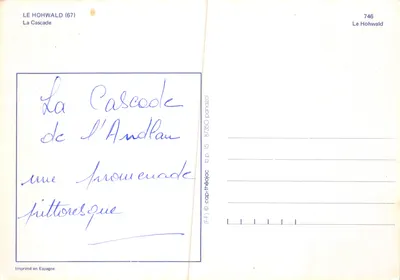 LE HOHWALD (67)
La Cascade
746
Le Hohwald
La Cascade
de l'Andlau
une promenade
pittoresque
cap-théojac
Imprimé en Espagne